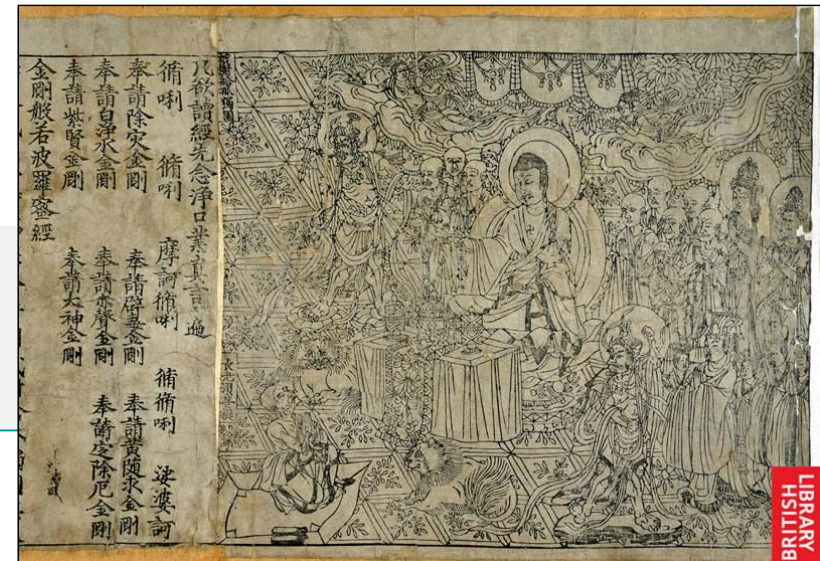 凡欲讀經先念淨口業真言一遍
脩唎 脩唎 摩訶脩唎 脩脩唎 娑婆訶
奉請除灾金剛 奉請辟毒金剛 奉請黄随求金剛
奉請白淨水金剛 奉請赤聲金剛 奉請定除厄金剛
奉請紫賢金剛 奉請大神金剛
金剛般若波羅蜜經
BRITISH
LIBRARY